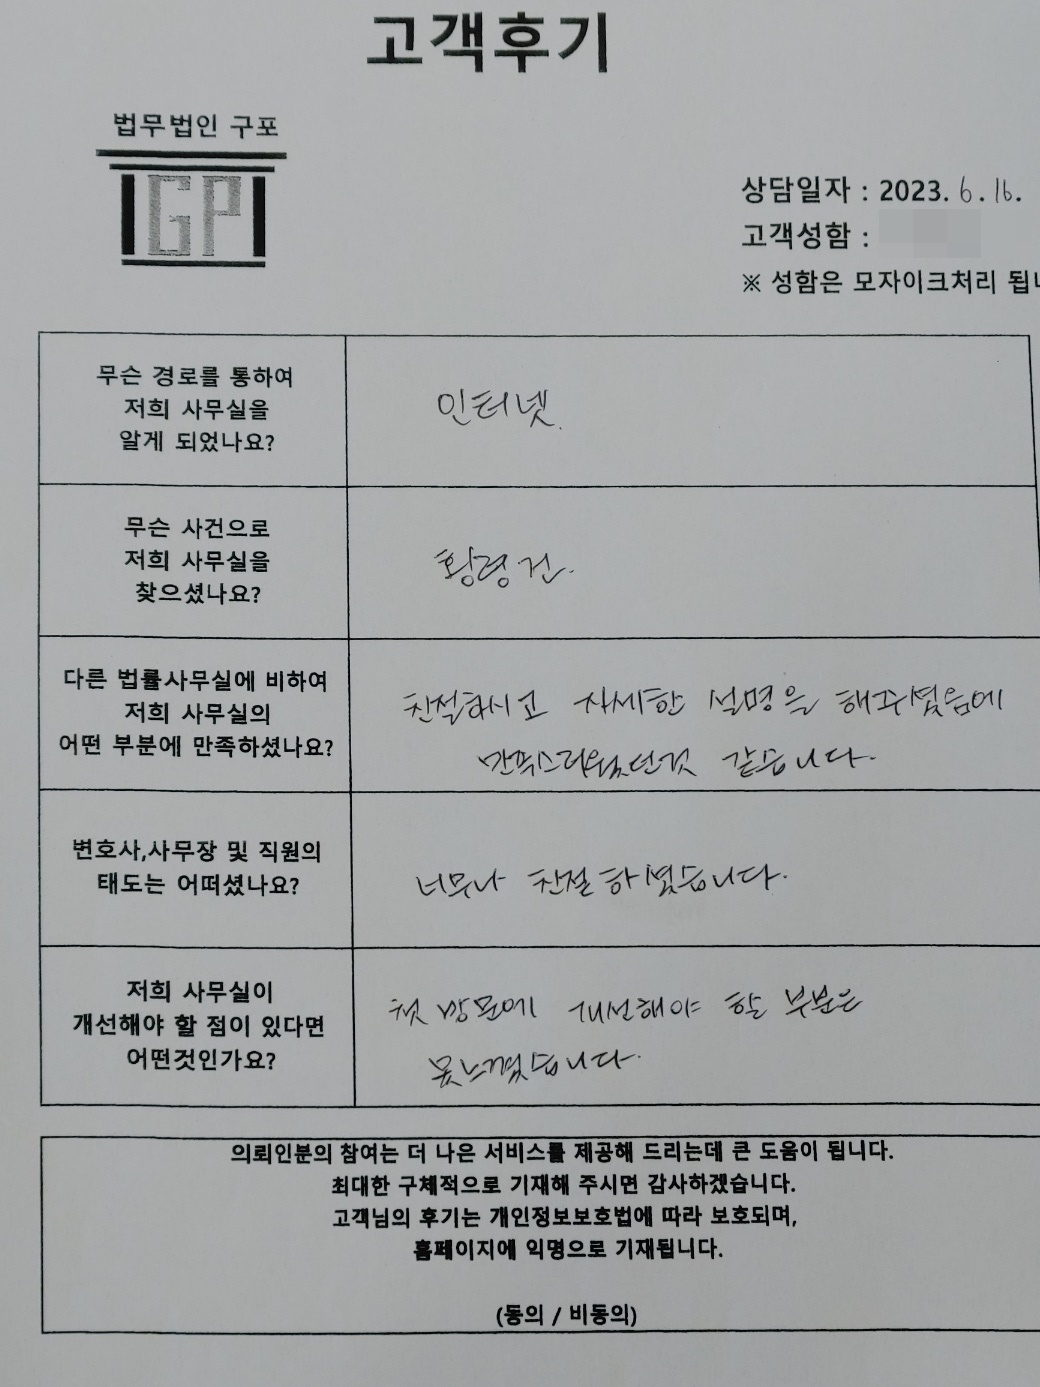 고객후기
법무법인 구포
GP
상담일자 : 2023. 6. 16.
고객성함 :
※ 성함은 모자이크처리 됩니
무슨 경로를 통하여
저희 사무실을
알게 되었나요?
인터넷.
무슨 사건으로
저희 사무실을
찾으셨나요?
횡령건.
다른 법률사무실에 비하여
저희 사무실의
어떤 부분에 만족하셨나요?
친절하시고 자세한 설명을 해주셨음에
만족스러웠던것 같습니다.
변호사,사무장 및 직원의
태도는 어떠셨나요?
너무나 친절하셨습니다.
저희 사무실이
개선해야 할 점이 있다면
어떤것인가요?
첫 방문에 개선해야 할 부분은
못느꼈습니다.
의뢰인분의 참여는 더 나은 서비스를 제공해 드리는데 큰 도움이 됩니다.
최대한 구체적으로 기재해 주시면 감사하겠습니다.
고객님의 후기는 개인정보보호법에 따라 보호되며,
홈페이지에 익명으로 기재됩니다.
(동의 / 비동의)